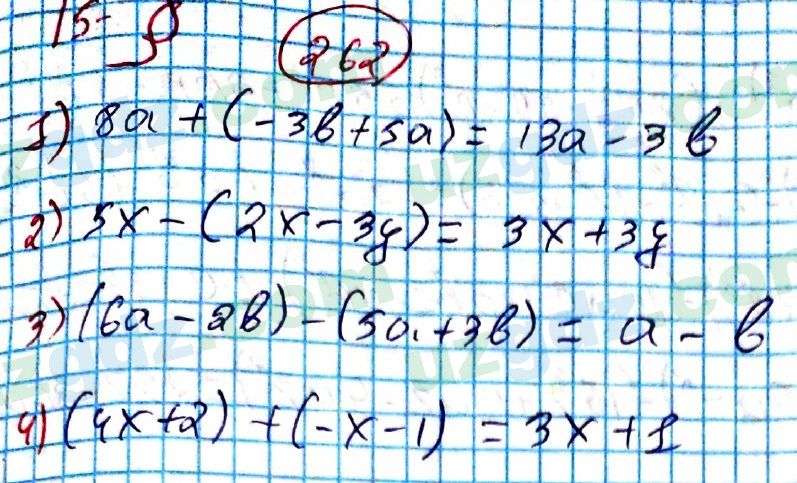 15-§
262
1) 8a + (-3b + 5a) = 13a - 3b
2) 5x - (2x - 3y) = 3x + 3y
3) (6a - 2b) - (5a + 3b) = a - b
4) (4x + 2) + (-x - 1) = 3x + 1